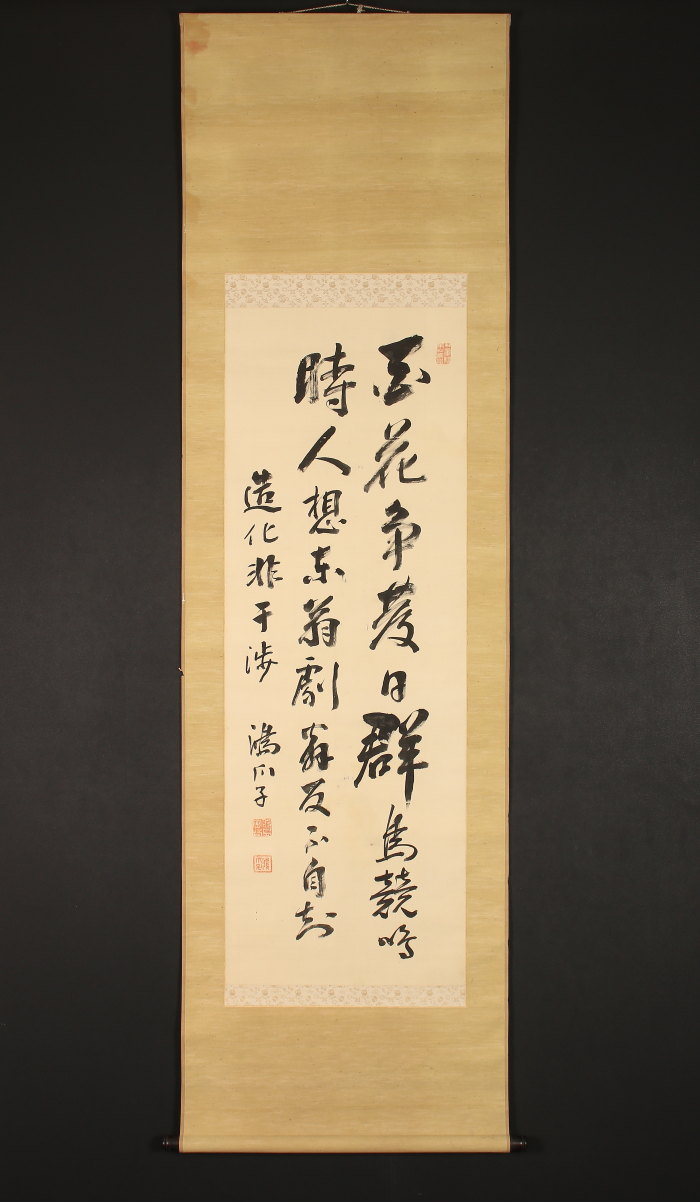 百花争發日群鳥競鳴
時人想東翁劇翁友不自知
造化非干渉 鴻爪子